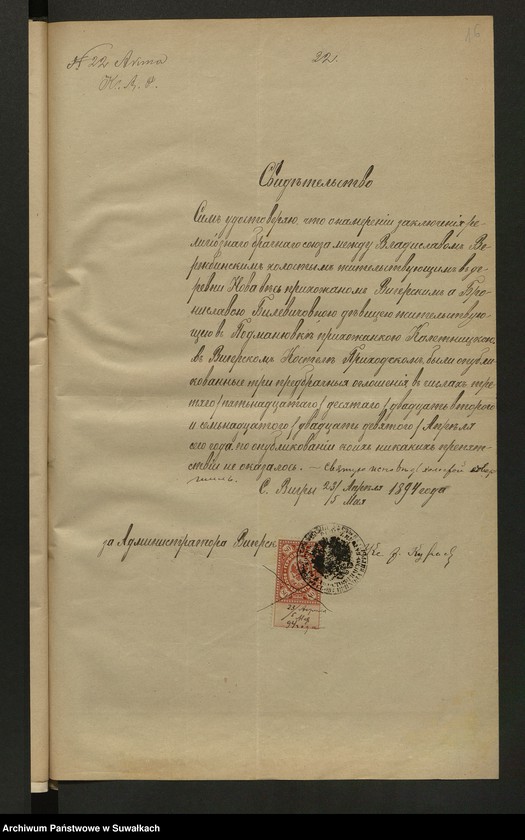 16
№ 22 Акта
22.
Свидѣтельство
Симъ удостовѣряю, что о намѣреніи заключенія ре-
лигіознаго брачнаго союза между Владиславомъ Ве-
холостымъ жительствующимъ въ де-
ревни Нова весь прихожаномъ Вигерскимъ а Бро-
ниславою Билевичовною дѣвицею жительствую-
щею въ прихожанкою Калетницкою,
въ Вигерскомъ Костелѣ Приходскомъ были опубли-
кованные три предбрачныя оглашенія въ числахъ тре-
тяго /пятьнадцатаго/ десятаго /двадцать втораго
и семьнадцатаго /двадцать девятаго/ Апрѣля
сего года, по опубликованіи коихъ никакихъ препят-
ствій не оказалось. — святую исповѣдь
С. Вигры 23/ Апрѣля 1894 года
/5 Мая
за Администратора Вигерск
23/Апрѣля
5 Мая
94 года
Archiwum Państwowe w Suwałkach